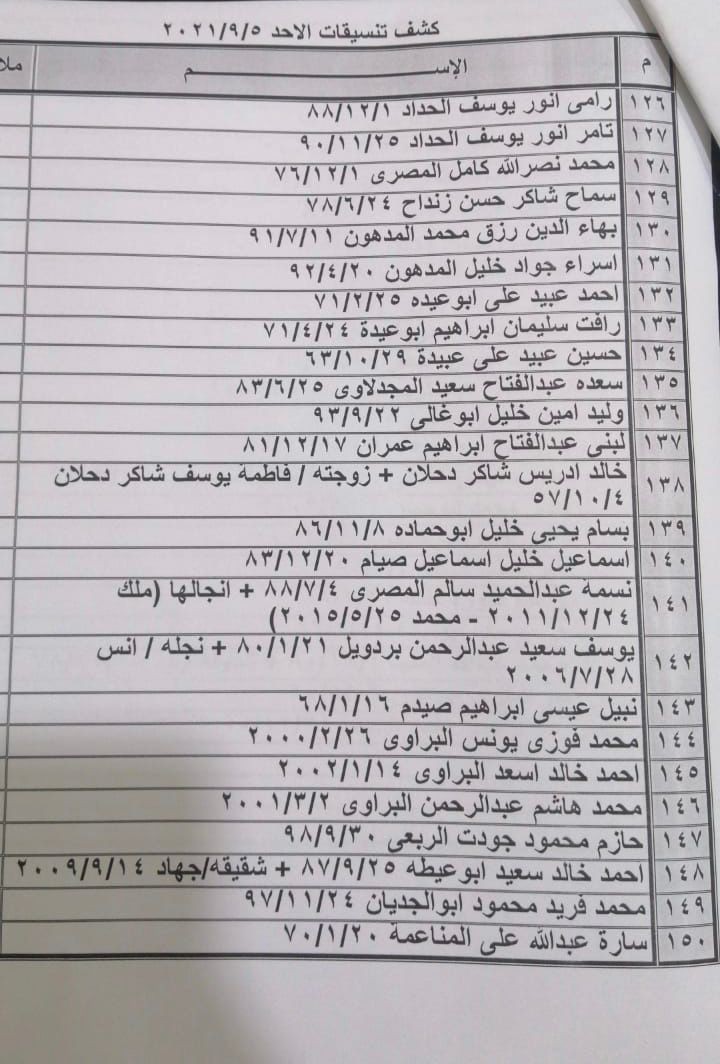 كشف تنسيقات الاحد ٢٠٢١/٩/٥
م الإســـــــــــــــم ملا
١٢٦ رامى انور يوسف الحداد ٨٨/١٢/١
١٢٧ تامر انور يوسف الحداد ٩٠/١١/٢٥
١٢٨ محمد نصرالله كامل المصرى ٧٦/١٢/١
١٢٩ سماح شاكر حسن زنداح ٧٨/٦/٢٤
١٣٠ بهاء الدين رزق محمد المدهون ٩١/٧/١١
١٣١ اسراء جواد خليل المدهون ٩٢/٤/٢٠
١٣٢ احمد عبيد على ابوعيده ٧١/٢/٢٥
١٣٣ رافت سليمان ابراهيم ابوعيدة ٧١/٤/٢٤
١٣٤ حسين عبيد على عبيدة ٦٣/١٠/٢٩
١٣٥ سعده عبدالفتاح سعيد المجدلاوى ٨٣/٦/٢٥
١٣٦ وليد امين خليل ابوغالى ٩٣/٩/٢٢
١٣٧ لبنى عبدالفتاح ابراهيم عمران ٨١/١٢/١٧
١٣٨ خالد ادريس شاكر دحلان + زوجته / فاطمة يوسف شاكر دحلان
٥٧/١٠/٤
١٣٩ بسام يحيى خليل ابوحماده ٨٦/١١/٨
١٤٠ اسماعيل خليل اسماعيل صيام ٨٣/١٢/٢٠
١٤١ نسمة عبدالحميد سالم المصرى ٨٨/٧/٤ + انجالها (ملك
٢٠١١/١٢/٢٤ - محمد ٢٠١٥/٥/٢٥)
١٤٢ يوسف سعيد عبدالرحمن بردويل ٨٠/١/٢١ + نجله / انس
٢٠٠٦/٧/٢٨
١٤٣ نبيل عيسى ابراهيم صيدم ٦٨/١/١٦
١٤٤ محمد فوزى يونس البراوى ٢٠٠٠/٢/٢٦
١٤٥ احمد خالد اسعد البراوى ٢٠٠٢/١/١٤
١٤٦ محمد هاشم عبدالرحمن البراوى ٢٠٠١/٣/٢
١٤٧ حازم محمود جودت الربعى ٩٨/٩/٣٠
١٤٨ احمد خالد سعيد ابوعيطه ٨٧/٩/٢٥ + شقيقه/جهاد ٢٠٠٩/٩/١٤
١٤٩ محمد فريد محمود ابوالجديان ٩٧/١١/٢٤
١٥٠ سارة عبدالله على المناعمة ٧٠/١/٢٠